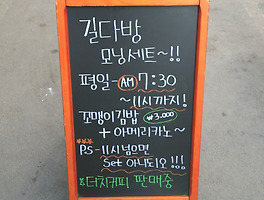 길다방
모닝세트~!!
평일-AM7:30
~11시까지!
꼬맹이김밥 ₩3.000
+아메리카노~
P.S-11시넘으면
Set 아니되오!!!
더치커피 판매중